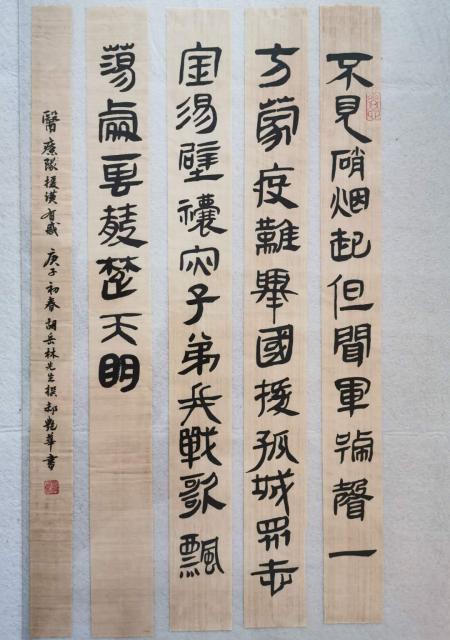 不見硝烟起但聞軍號聲一
方蒙疫難舉國援孤城眾志
金湯壁禳灾子弟兵戰歌飄
蕩處楚天明
醫療隊援漢有感 庚子初春 胡岳林先生撰 郝艷華書